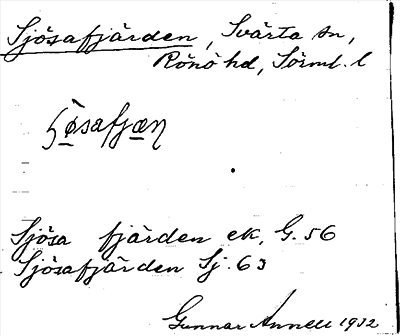 Sjösafjärden, Svärta sn,
Rönö hd, Sörml. l
ʃø̀safjæɳ
Sjösa fjärden ek, G. 56
Sjösafjärden Sj. 63
Gunnar Annell 1932